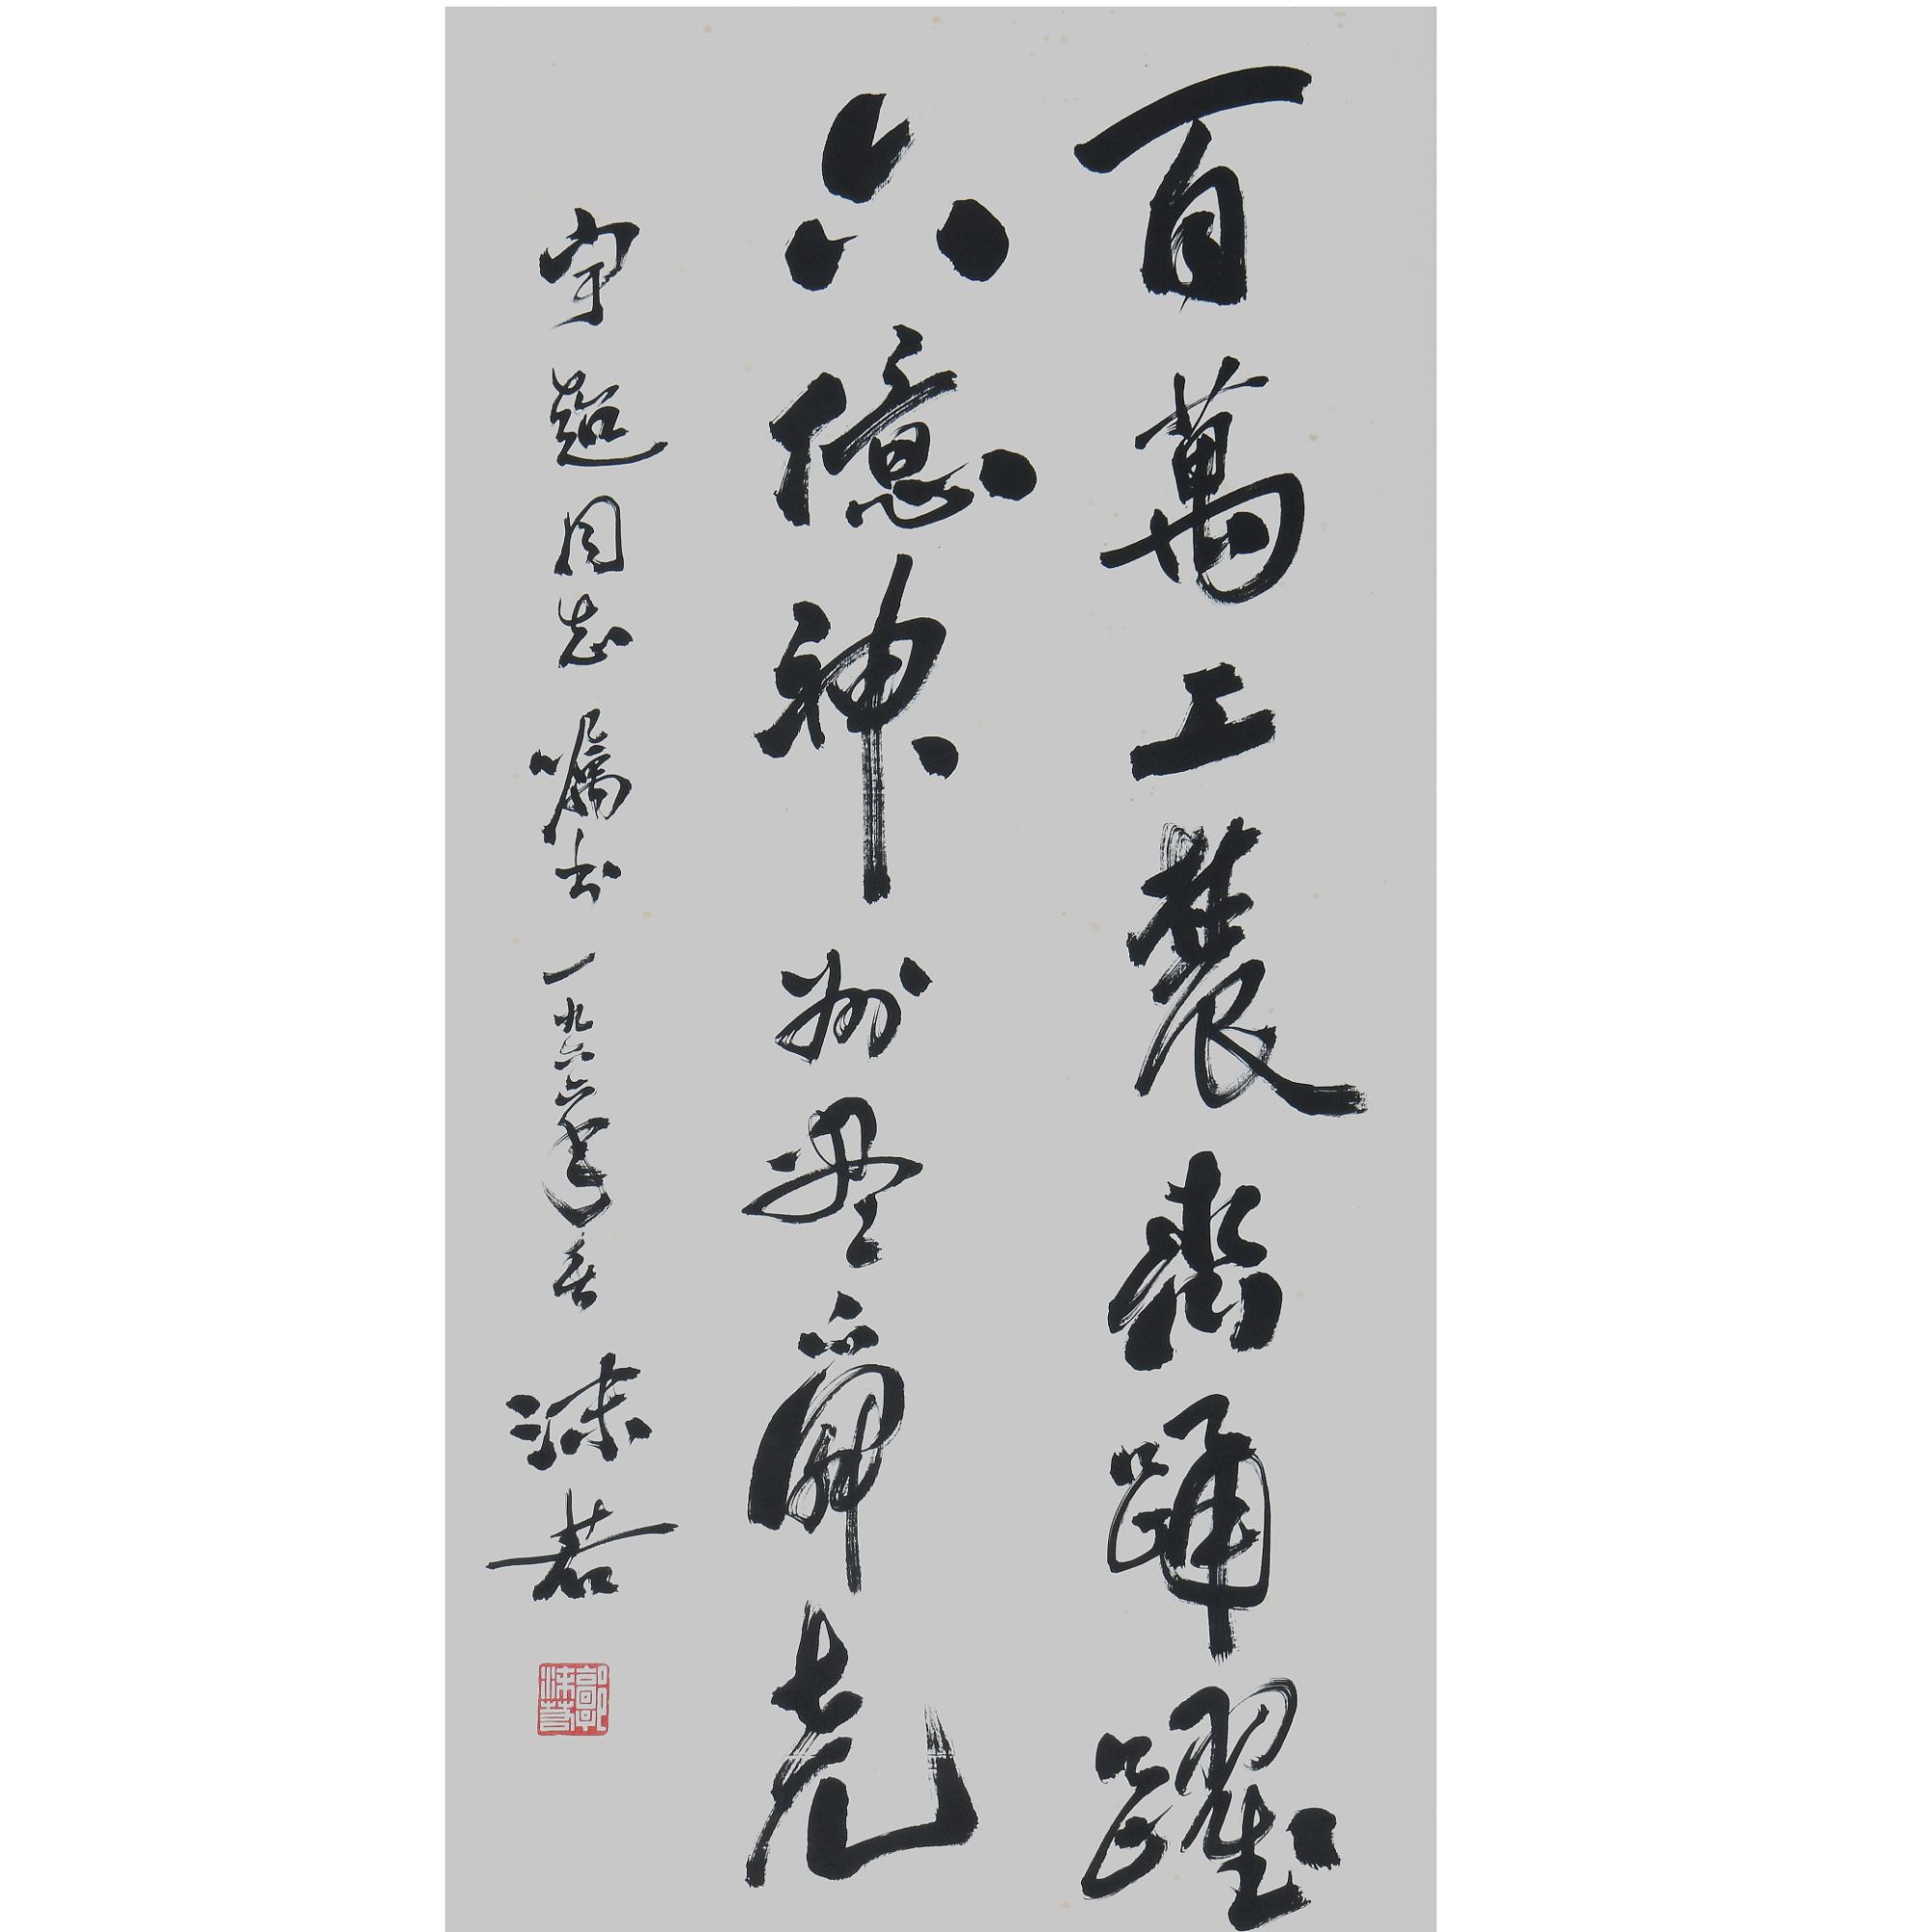 百萬工農齊踊躍
六億神州盡舜堯
宇超同志嘱书 一九六六年春 沫若
郭沫若